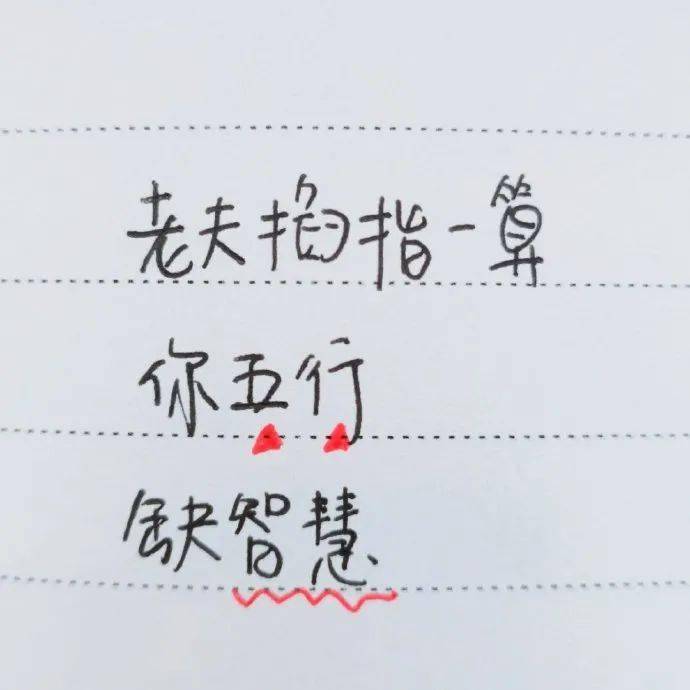 老夫掐指一算
你五行
缺智慧